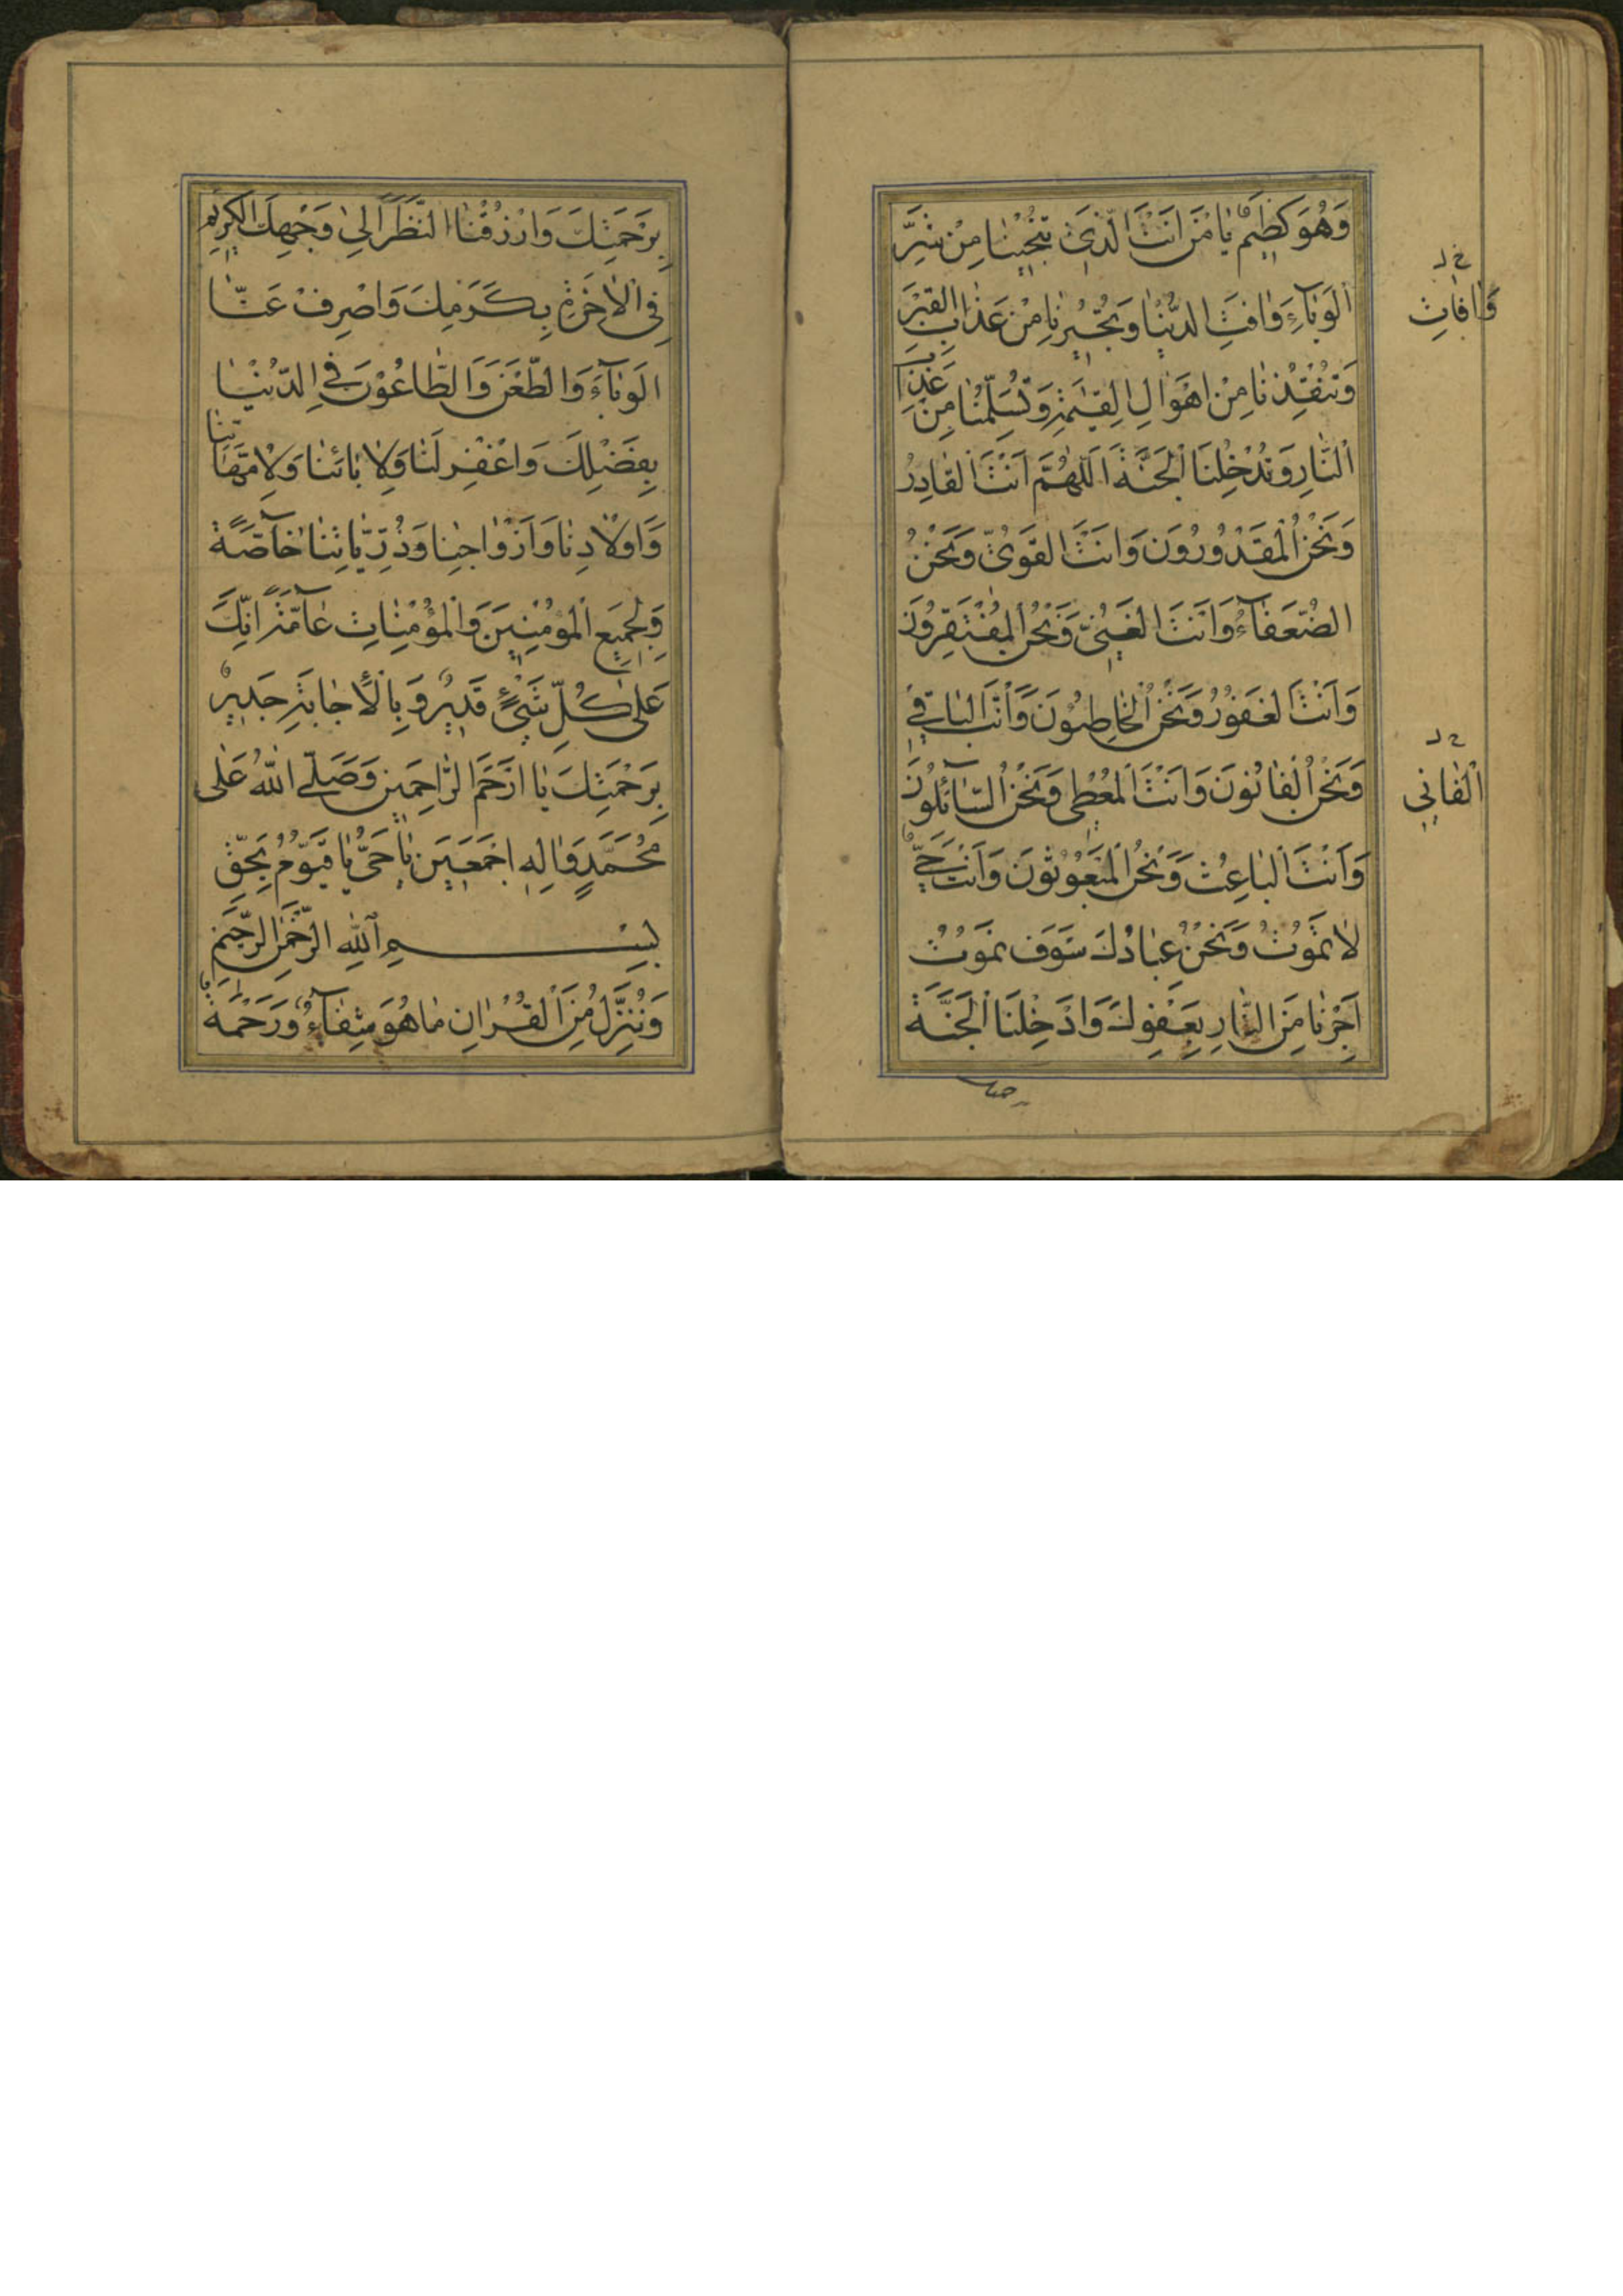 وَهُوَ كَظِيمٌ يَا مَنْ اَنْتَ الَّذِي تُنْجِينَا مِنْ شَرِّ
الْوَبَآءِ وَاٰفَتِ الدُّنْيَا وَتُجِيْرُنَا مِنْ عَذَابِ الْقَبْرِ
وَتُنْقِذُنَا مِنْ اَهْوَالِ الْقِيٰمَةِ وَتُسَلِّمُنَا مِنْ عَذَابِ
النَّارِ وَتُدْخِلُنَا الْجَنَّةَ اَللّٰهُمَّ اَنْتَ الْقَادِرُ
وَنَحْنُ الْمَقْدُورُونَ وَاَنْتَ الْقَوِيُّ وَنَحْنُ
الضُّعَفَآءُ وَاَنْتَ الْغَنِيُّ وَنَحْنُ الْمُفْتَقِرُونَ
وَاَنْتَ الْغَفُورُ وَنَحْنُ الْخَاطِئُونَ وَاَنْتَ الْبَاقِي
وَنَحْنُ الْفَانُونَ وَاَنْتَ الْمُعْطِي وَنَحْنُ السَّآئِلُونَ
وَاَنْتَ الْبَاعِثُ وَنَحْنُ الْمَبْعُوثُونَ وَاَنْتَ حَيٌّ
لَا تَمُوتُ وَنَحْنُ عِبَادُكَ سَوْفَ نَمُوتُ
اَجِرْنَا مِنَ النَّارِ بِعَفْوِكَ وَاَدْخِلْنَا الْجَنَّةَ
وَاٰفَاتِ
الْفَانِي
بِرَحْمَتِكَ وَارْزُقْنَا النَّظَرَ اِلٰى وَجْهِكَ الْكَرِيمِ
فِي الْاٰخِرَةِ بِكَرَمِكَ وَاصْرِفْ عَنَّا
الْوَبَآءَ وَالطَّعْنَ وَالطَّاعُوْنَ فِي الدُّنْيَا
بِفَضْلِكَ وَاغْفِرْ لَنَا وَلِاٰبَائِنَا وَلِاُمَّهَاتِنَا
وَاَوْلَادِنَا وَاَزْوَاجِنَا وَذُرِّيَّاتِنَا خَآصَّةً
وَلِجَمِيعِ الْمُؤْمِنِينَ وَالْمُؤْمِنَاتِ عَآمَّةً اِنَّكَ
عَلٰى كُلِّ شَيْءٍ قَدِيرٌ وَبِالْاِجَابَةِ جَدِيرٌ
بِرَحْمَتِكَ يَا اَرْحَمَ الرَّاحِمِينَ وَصَلَّى اللّٰهُ عَلٰى
مُحَمَّدٍ وَاٰلِهِ اَجْمَعِينَ يَا حَيُّ يَا قَيُّوْمُ بِحَقِّ
بِسْمِ اللّٰهِ الرَّحْمٰنِ الرَّحِيمِ
وَنُنَزِّلُ مِنَ الْقُرْاٰنِ مَا هُوَ شِفَآءٌ وَرَحْمَةٌ